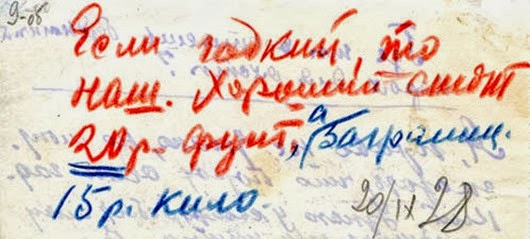 9-08
Если гадкий, то
наш. Хороший стоит
20 р. фунт, а
15 р. кило.
20/IX 28